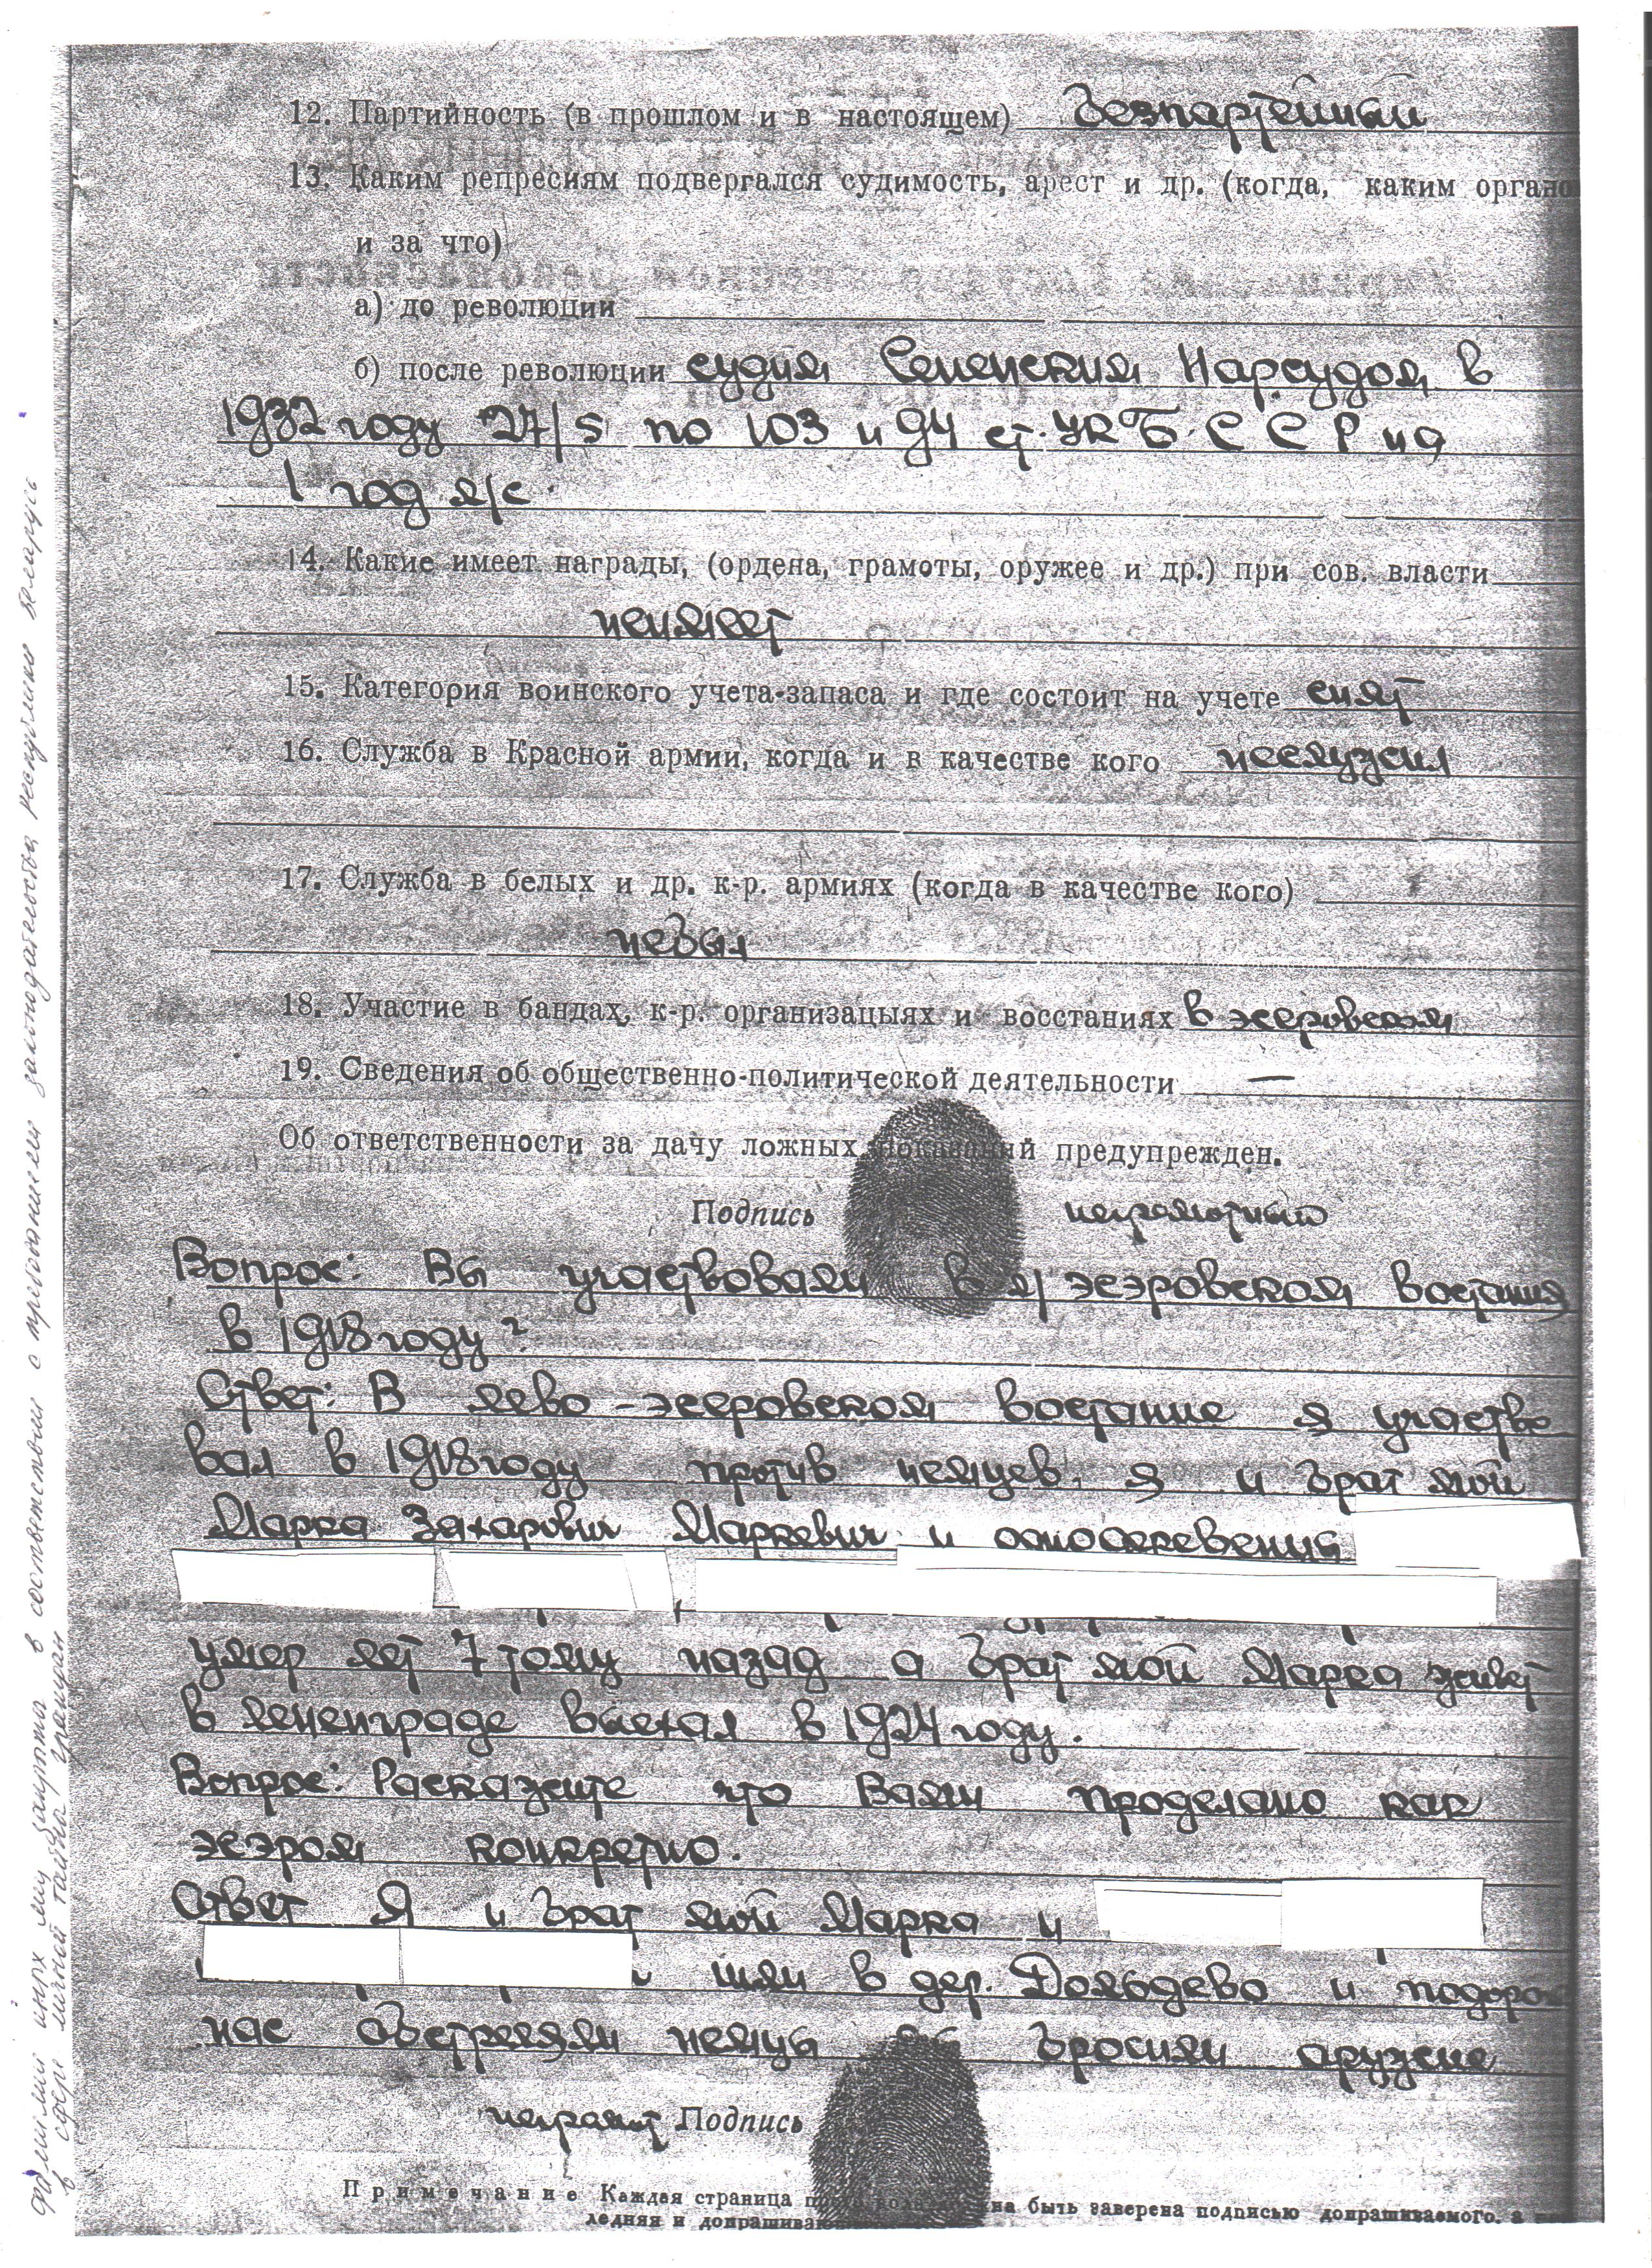 12. Партийность (в прошлом и в настоящем) безпартейный
13. Каким репресиям подвергался судимость, арест и др. (когда, каким органо
и за что)
а) до революции
б) после революции судим Сененским Нарсудом в
1932 году 27/5 по 103 и 94 ст. УК Б. С С Р на
1 год л/с.
14. Какие имеет награды, (ордена, грамоты, оружее и др.) при сов. власти
неимеет
15. Категория воинского учета-запаса и где состоит на учете снят
16. Служба в Красной армии, когда и в качестве кого неслужил
17. Служба в белых и др. к-р. армиях (когда в качестве кого)
небыл
18. Участие в бандах, к-р. организацыях и восстаниях в эсеровском
19. Сведения об общественно-политической деятельности —
Об ответственности за дачу ложных показаний предупрежден.
Подпись неграмотный
Вопрос: Вы участвовали в л/эсэровском востания
в 1918 году?
Ответ: В лево-эсеровском востание я участво
вал в 1918 году против немцев, я и брат мой
Марка Захарович Маркевич и односелевения
умер лет 7 тому назад а брат мой Марка живет
в ленинграде выехал в 1924 году.
Вопрос: Раскажите что Вами проделано как
эсэром конкретно.
Ответ Я и брат мой Марка и
шли в дер. Дольдево и подорог
нас обстреляли немцы бросили оружие
неграмот Подпись
Примечание Каждая страница быть заверена подписью допрашиваемого, а
ледняя и допрашива
фамилии иных лиц закрыты в соответствии с требованиями законодательства республики Беларусь
в сфере личной тайны граждан